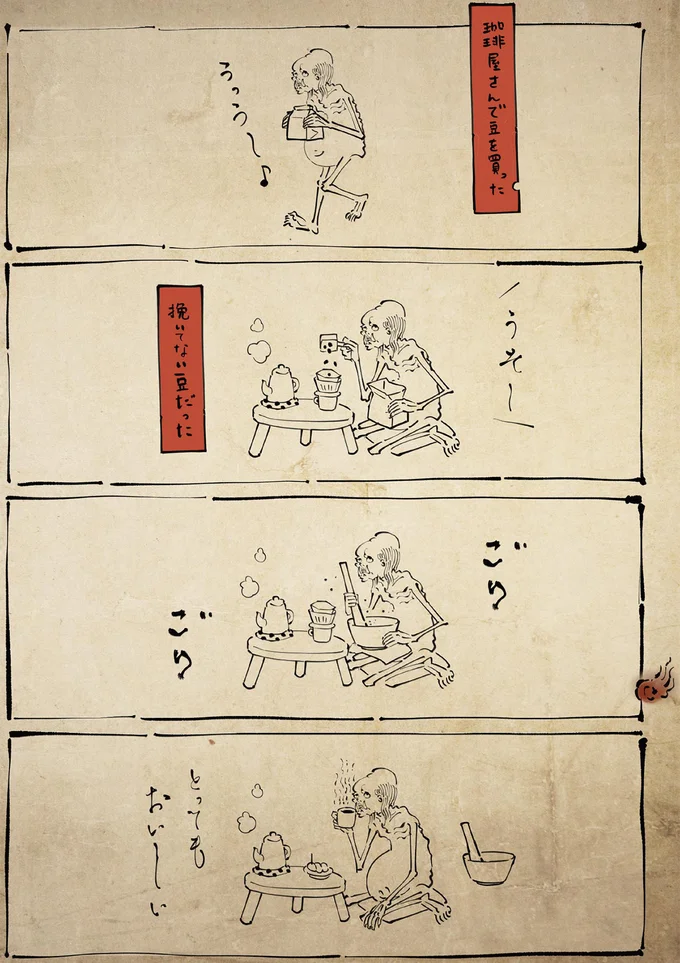 珈琲屋さんで豆を買った
うっうー♪
うそー
挽いてない豆だった
ごり
ごり
とっても
おいしい